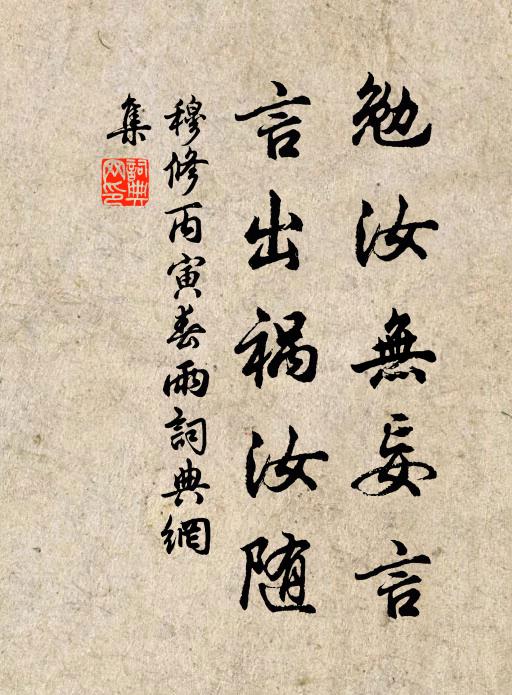 勉汝無妄言
言出祸汝随
穆修丙寅春雨詞典網
集
詞典網印